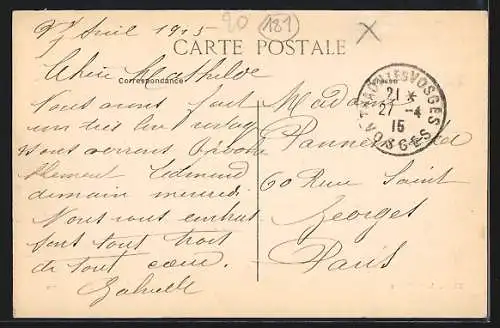 27 Avril 1915
20
181
X
CARTE POSTALE
Correspondance
Chère Mathilde
Nous avons fait
un très bon voyage
nous verrons
Edmond
demain mercredi.
Nous vous embrassons
tous trois
de tout cœur.
Gabrielle
Madame
60 Rue Saint
Georges
Paris
VOSGES
21 *
27 - 4
15
VOSGES